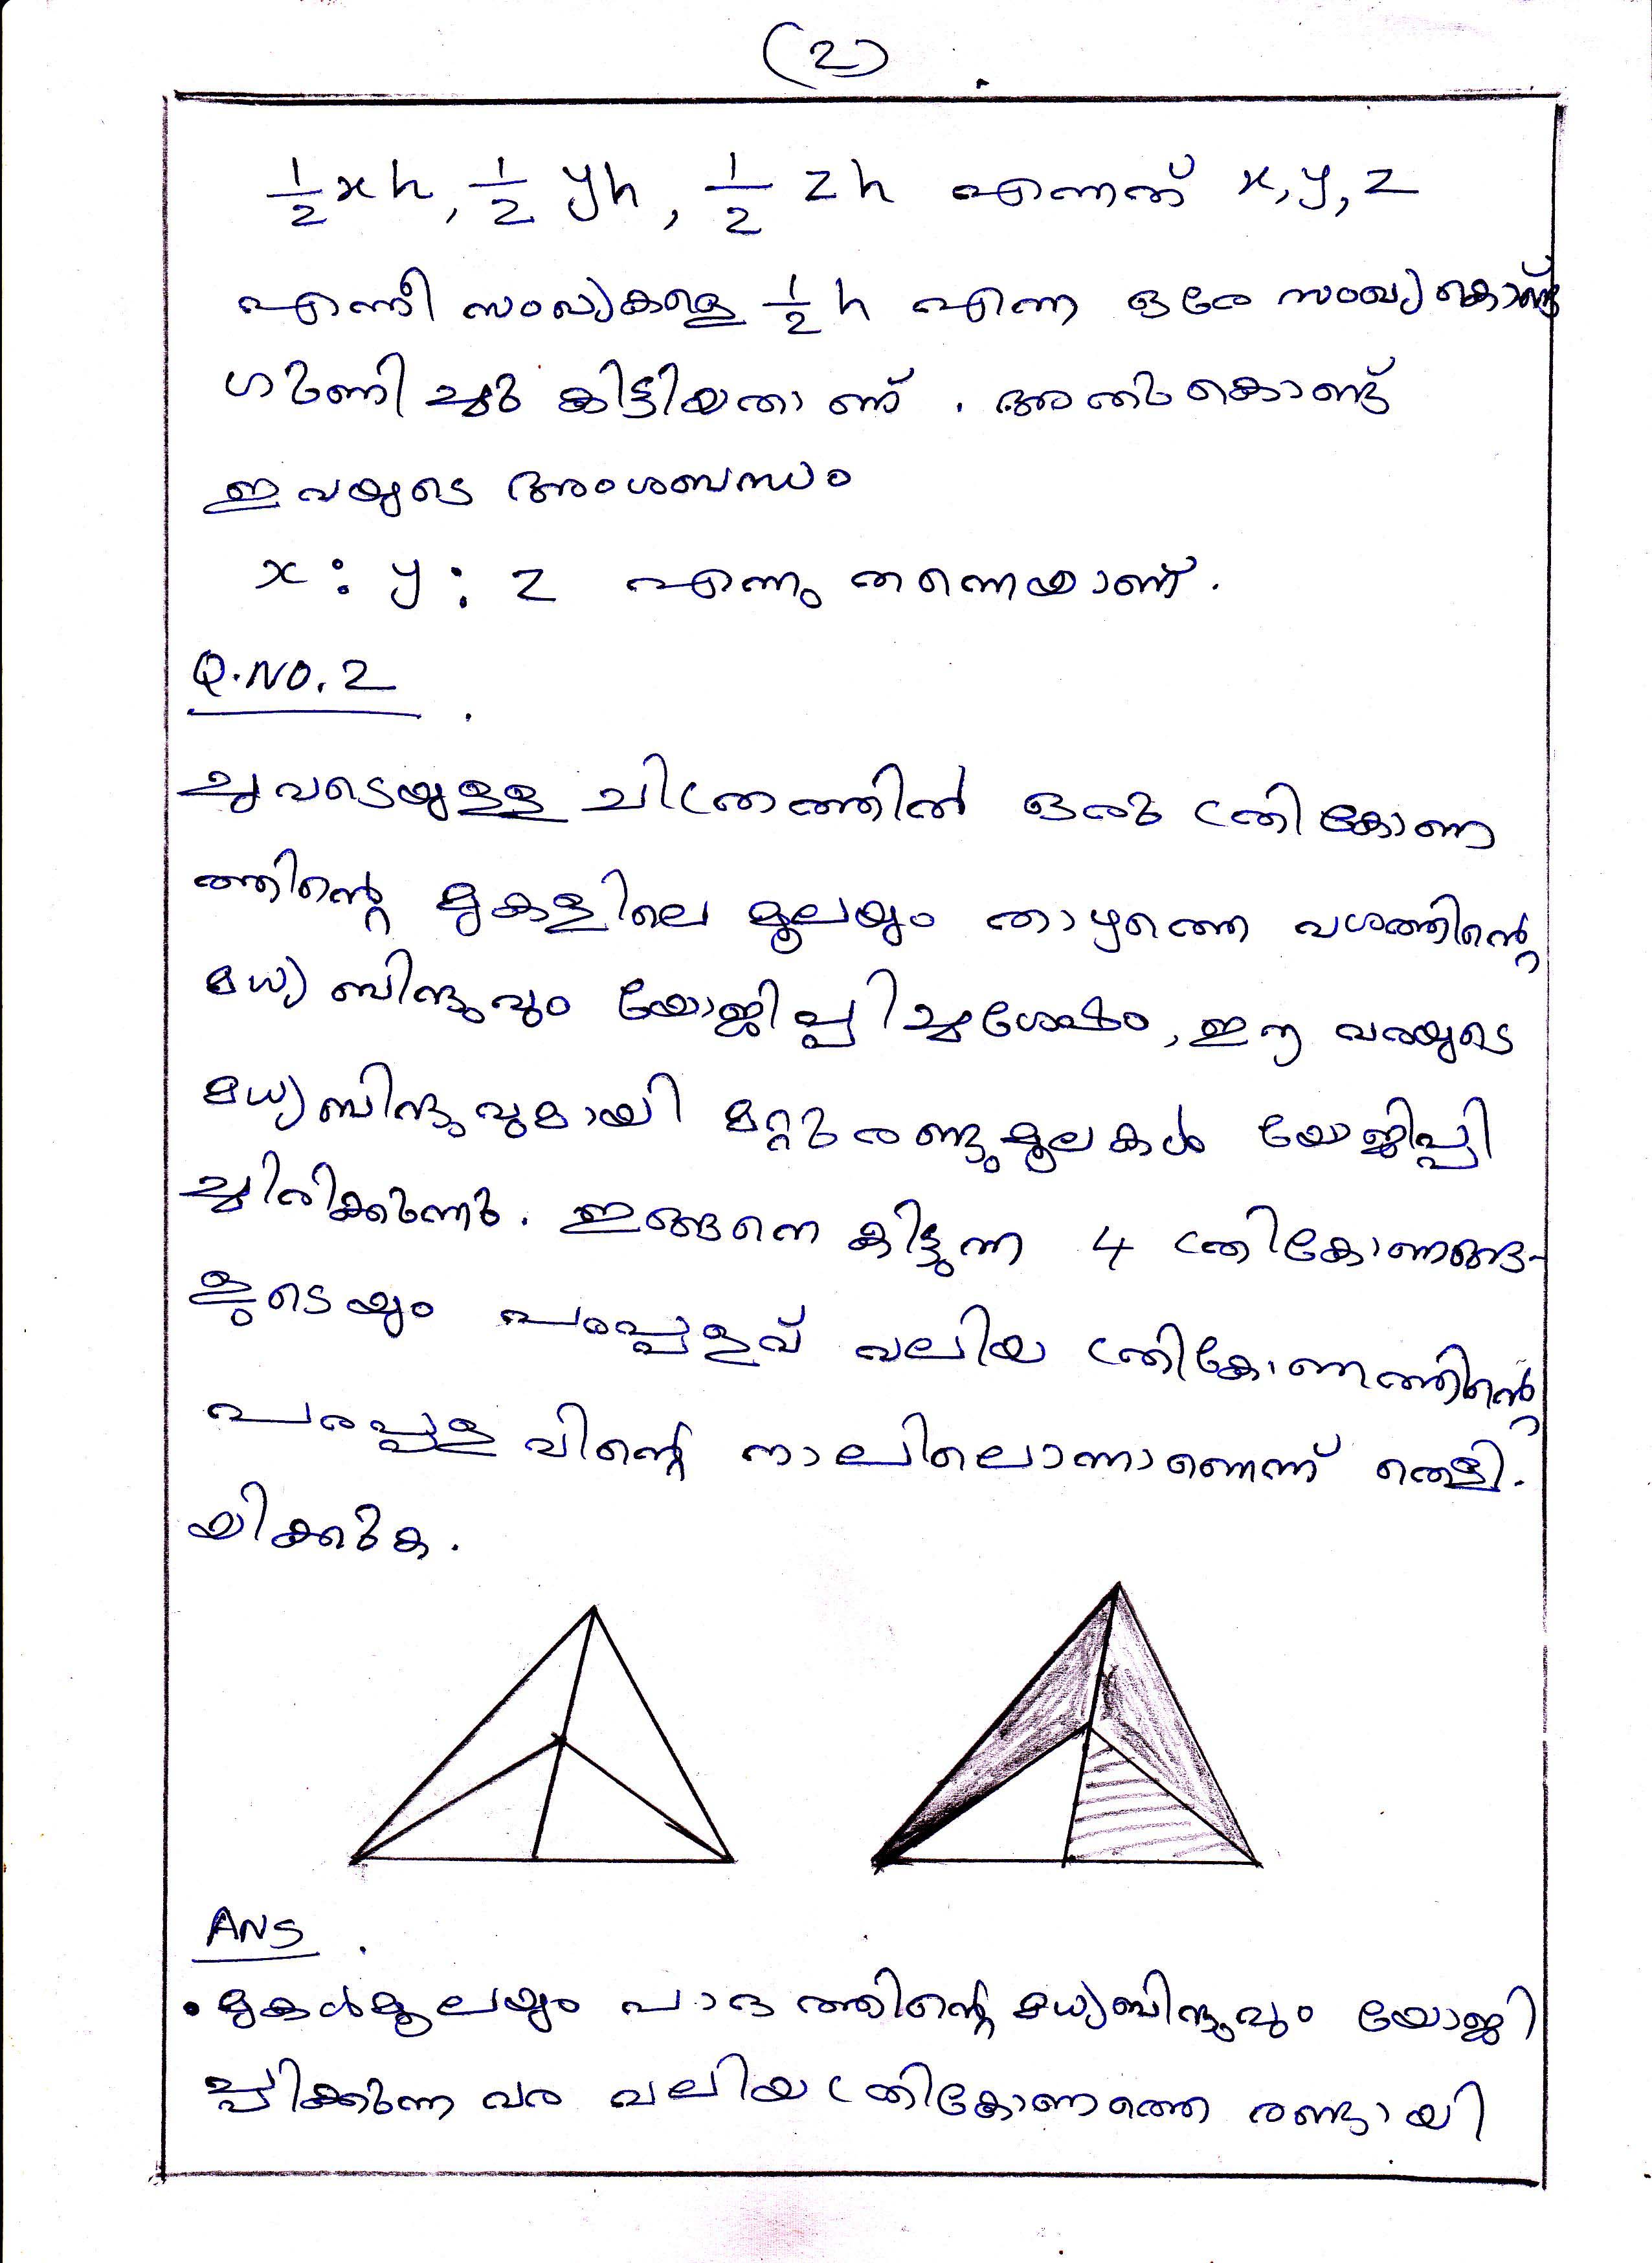 (2)
½xh, ½yh, ½zh എന്നത് x, y, z
എന്നീ സംഖ്യകളെ ½h എന്ന ഒരേ സംഖ്യകൊണ്ട്
ഗുണിച്ചു കിട്ടിയതാണ്. അതുകൊണ്ട്
ഇവയുടെ അംശബന്ധം
x : y : z എന്നു തന്നെയാണ്.
Q.NO.2
ചുവടെയുള്ള ചിത്രത്തിൽ ഒരു ത്രികോണ
ത്തിന്റെ മുകളിലെ മൂലയും താഴത്തെ വശത്തിന്റെ
മധ്യബിന്ദുവും യോജിപ്പിച്ചശേഷം, ഈ വരയുടെ
മധ്യബിന്ദുവുമായി മറ്റു രണ്ടുമൂലകൾ യോജിപ്പി
ച്ചിരിക്കുന്നു. ഇങ്ങനെ കിട്ടുന്ന 4 ത്രികോണങ്ങ-
ളുടെയും പരപ്പളവ് വലിയ ത്രികോണത്തിന്റെ
പരപ്പളവിന്റെ നാലിലൊന്നാണെന്ന് തെളി-
യിക്കുക.
ANS
• മുകൾമൂലയും പാദത്തിന്റെ മധ്യബിന്ദുവും യോജി
പ്പിക്കുന്ന വര വലിയ ത്രികോണത്തെ രണ്ടായി